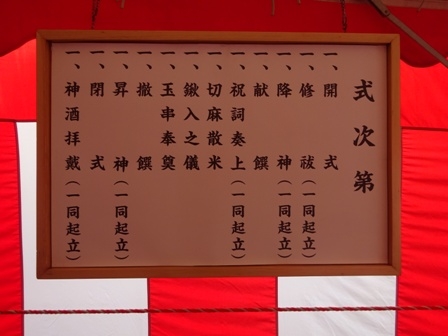 式次第
一、開式
一、修祓（一同起立）
一、降神（一同起立）
一、献饌
一、祝詞奏上（一同起立）
一、切麻散米
一、鍬入之儀
一、玉串奉奠
一、撤饌
一、昇神（一同起立）
一、閉式
一、神酒拝戴（一同起立）